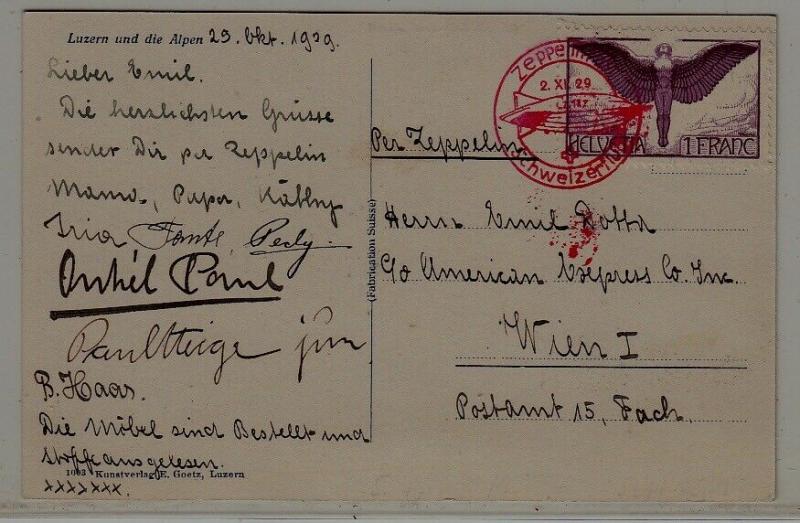 Luzern und die Alpen 29. Okt. 1929.
Lieber Emil.
Die herzlichsten Grüsse
sendet Dir per Zeppelin
Mama, Papa, Käthy
Tante Pedy.
Onkel Paul
Paul jun
B. Haas.
Die Möbel sind Bestellt und
Stoffe ausgelesen.
1093 Kunstverlag E. Goetz, Luzern
xxxxxxx.
(Fabrication Suisse)
Zeppelin
2. XI. 29
Schweizerflug
HELVETIA 1 FRANC
Per Zeppelin
Herrn Emil
c/o American Express Co. Inc.
Wien I
Postamt 15, Fach.